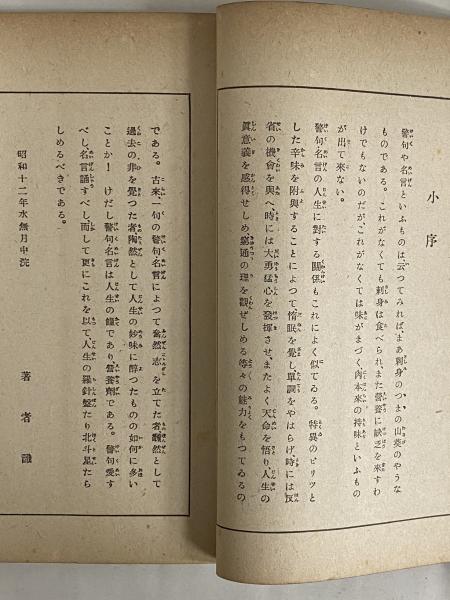 小序
警句や名言といふものは云つてみれば、まあ刺身のつまの山葵のやうな
ものである。これがなくても刺身は食べられまた營養に缺乏を來すわ
けでもないのだが、これがなくては味がまづく肉本來の持味といふもの
が出て來ない。
警句名言の人生に對する關係もこれによく似てゐる。特異のピリツと
した辛味を附與することによつて惰眠を覺し、單調をやはらげ、時には反
省の機會を與へ、時には大勇猛心を發揮させ、またよく天命を悟り、人生の
眞意義を感得せしめ、窮通の理を觀ぜしめる等々の魅力をもつてゐるの
である。古來、一句の警句名言によつて奮然志を立てた者飜然として
過去の非を覺つた者陶然として人生の妙味に醉つたものの如何に多い
ことか！けだし警句名言は人生の鹽であり營養劑である。警句愛す
べし、名言誦すべし、而して更にこれを以て人生の羅針盤たり北斗星たら
しめるべきである。
昭和十二年水無月中浣
著者識